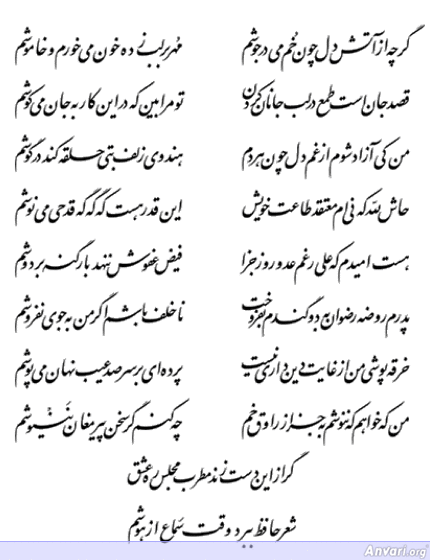 گرچه از آتش دل چون خُم می در جوشم مُهر بر لب زده خون می‌خورم و خاموشم
قصد جان است طمع در لب جانان کردن تو مرا بین که در این کار به جان می‌کوشم
من کی آزاد شوم از غم دل چون هر دم هندوی زلف بتی حلقه کند در گوشم
حاش لله که نی‌ام معتقد طاعت خویش این قدر هست که گه گه قدحی می نوشم
هست امیدم که علی رغم عدو روز جزا فیض عفوش ننهد بار گنه بر دوشم
پدرم روضه رضوان به دو گندم بفروخت ناخلف باشم اگر من به جوی نفروشم
خرقه پوشی من از غایت دین داری نیست پرده‌ای بر سر صد عیب نهان می‌پوشم
من که خواهم که ننوشم به جز از راوق خم چه کنم گر سخن پیر مغان نَنیوشم
گر از این دست زند مطرب مجلس ره عشق
شعر حافظ ببرد وقت سَماع از هوشم
Anvari.org